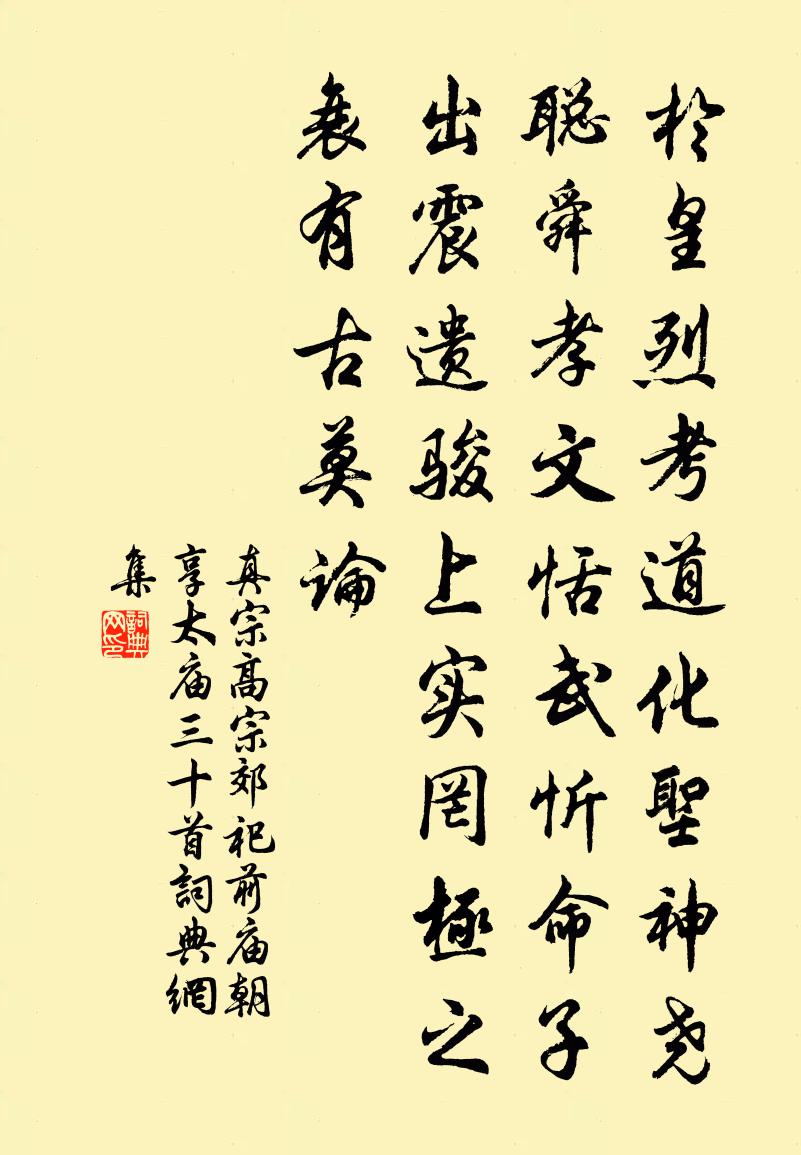 於皇烈考道化聖神尧
聪舜孝文恬武忻命子
出震遗骏上实罔極之
衰有古莫論
真宗高宗郊祀前庙朝
享太庙三十首詞典網
集
詞典网印